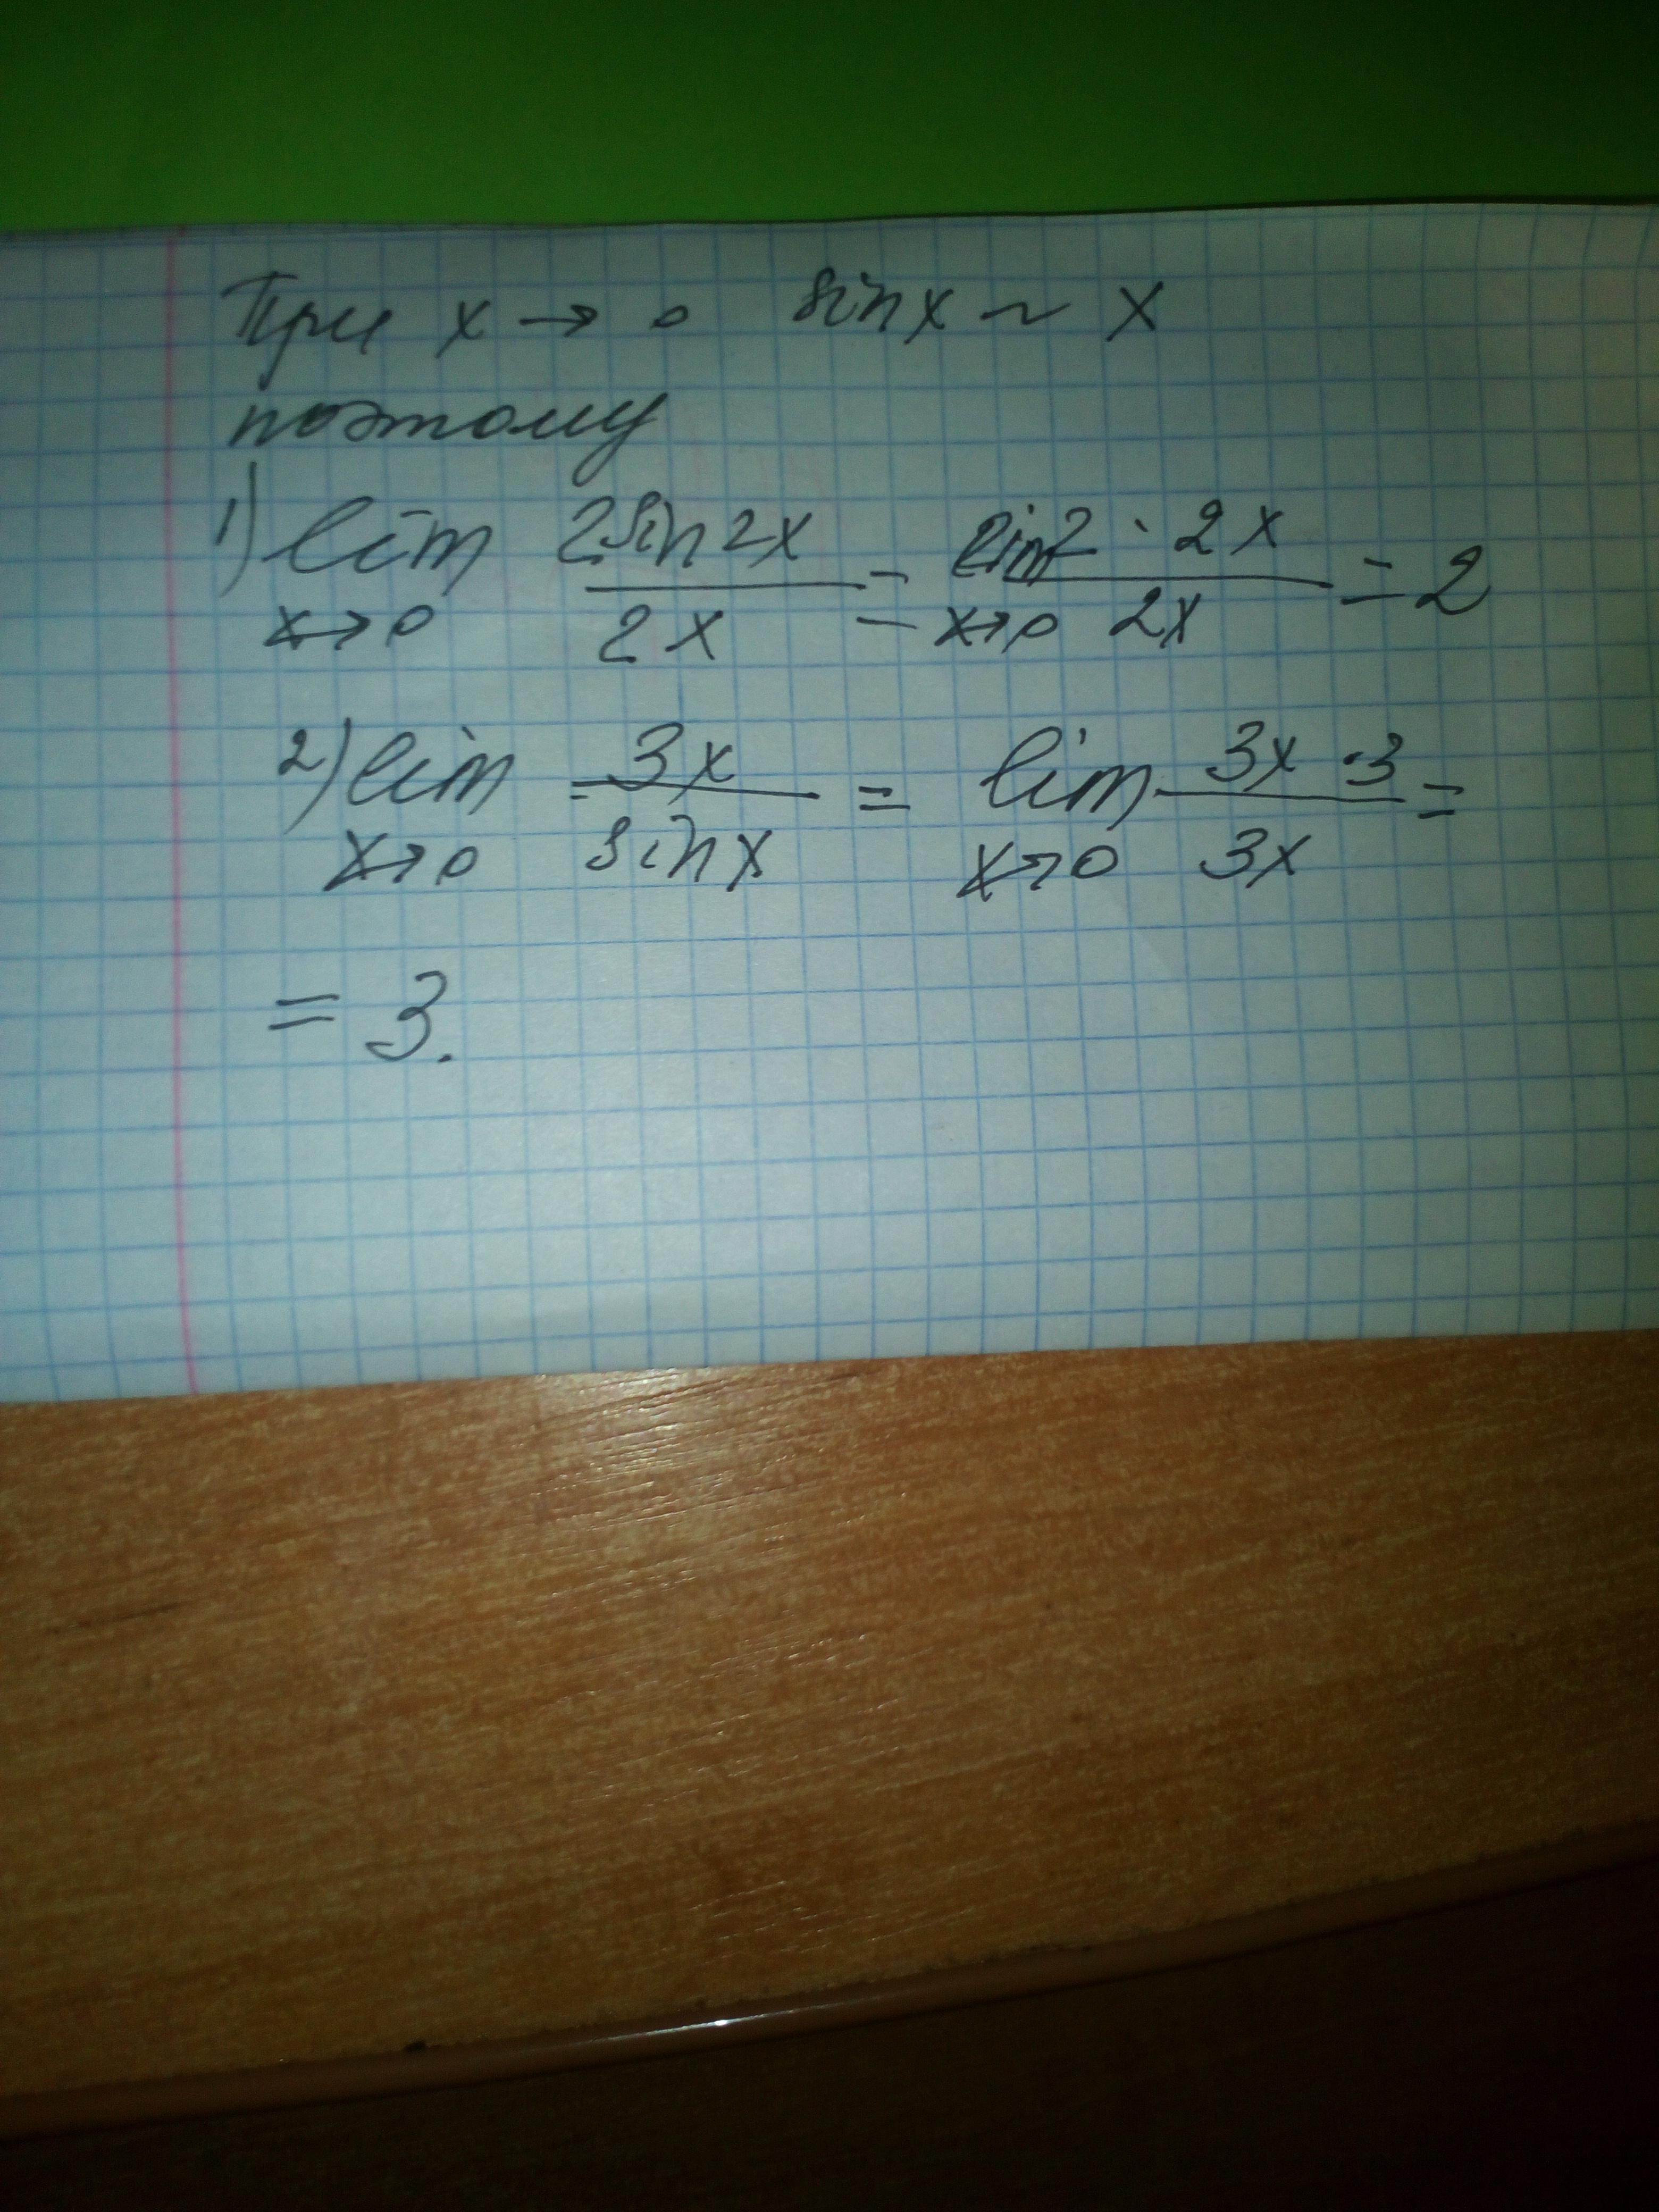 При x → 0 sin x ~ x
поэтому
1) lim x→0 2sin2x / 2x = lim x→0 2 · 2x / 2x = 2
2) lim x→0 3x / sin x = lim x→0 3x · 3 / 3x =
= 3.